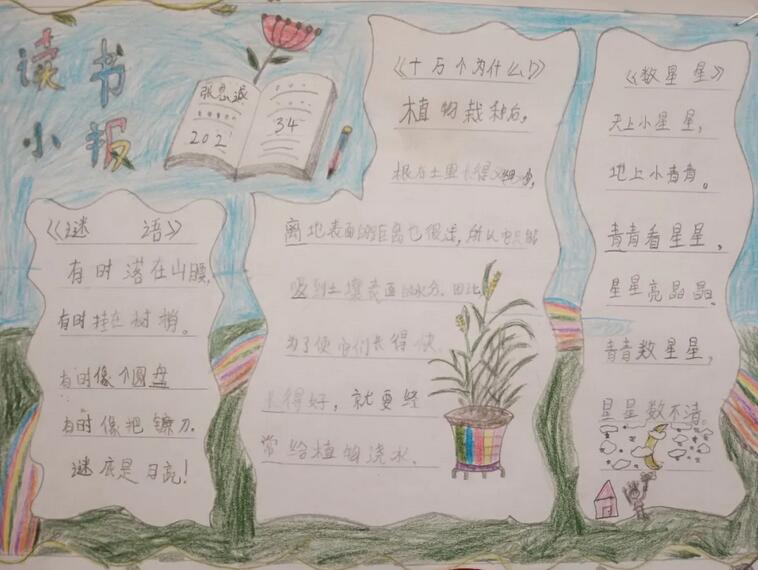 读书
小报
张忌诚
202
34
《谜 语》
有时落在山腰,
有时挂在树梢。
有时像个圆盘
有时像把镰刀.
谜底是月亮!
《十万个为什么!》
植物栽种后,
根在土里长得
离地表面的距离也很浅,所以也只能
吸到土壤表面的水分.因此
为了使它们长得快
长得好,就要经
常给植物浇水.
《数星星》
天上小星星,
地上小青青。
青青看星星,
星星亮晶晶。
青青数星星,
星星数不清。